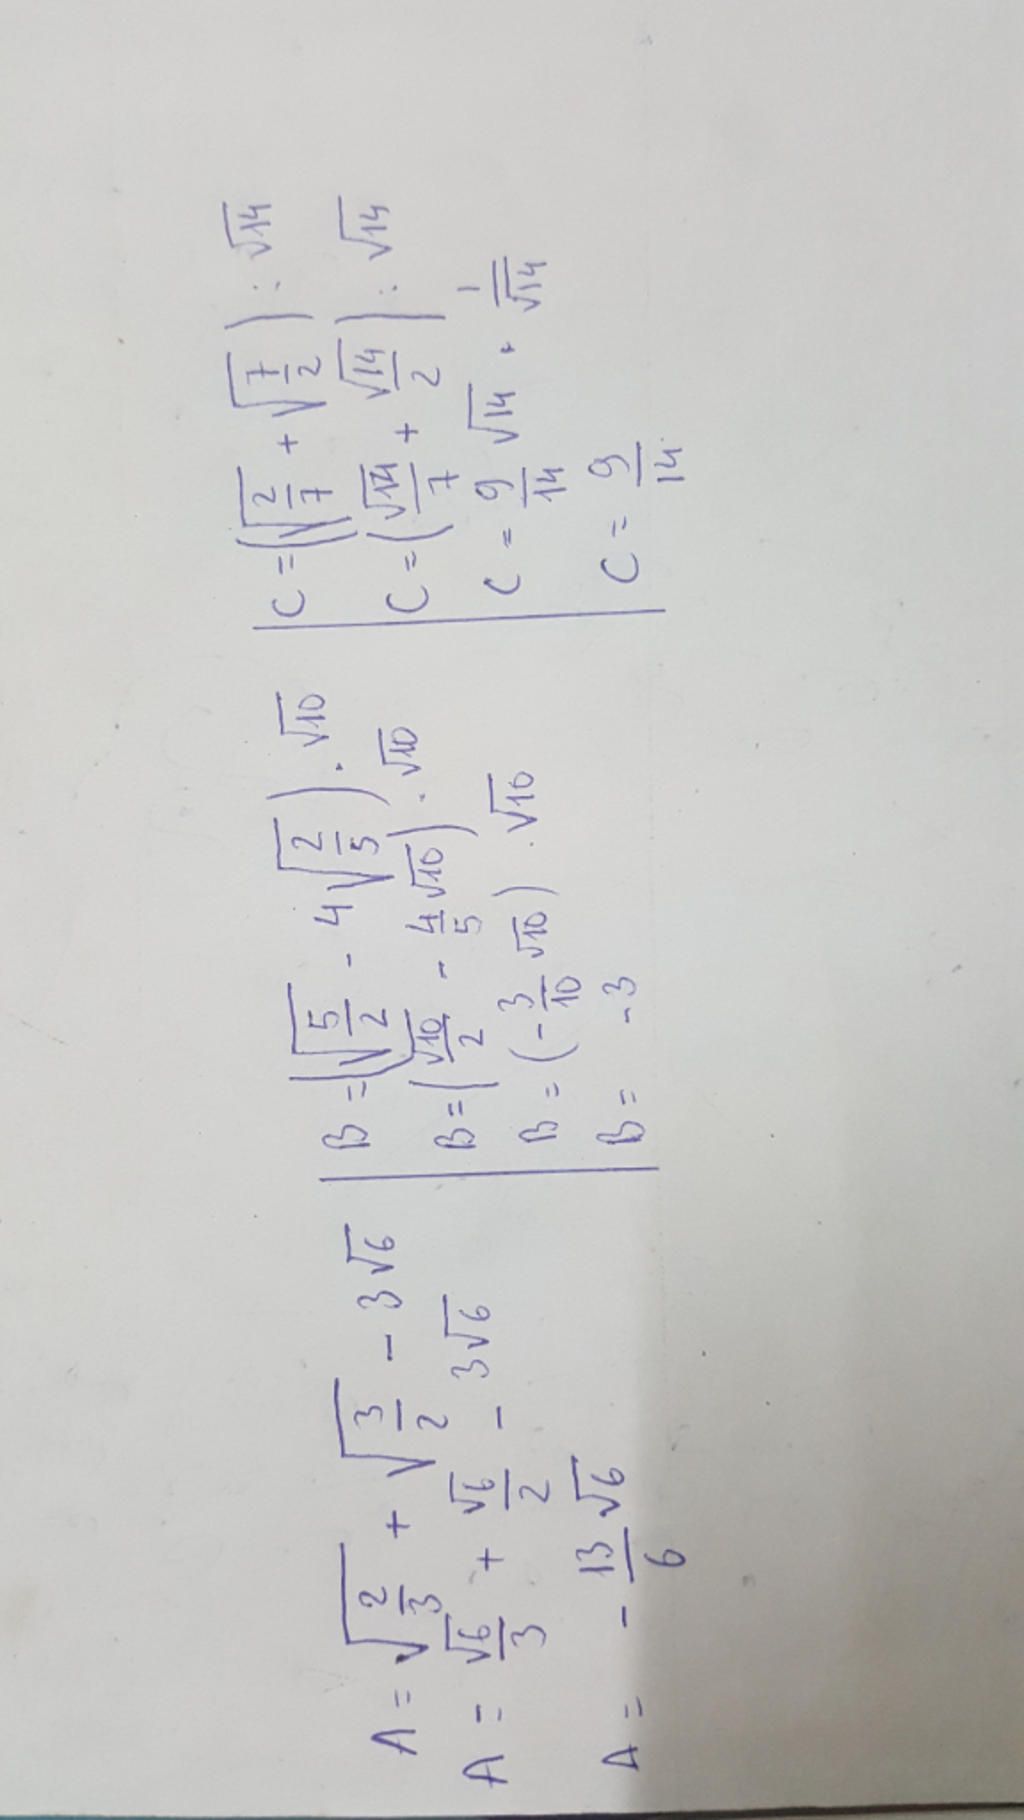 A = √(2/3) + √(3/2) - 3√6
A = √6/3 + √6/2 - 3√6
A = - 13/6 √6
B = (√(5/2) - 4√(2/5)) . √10
B = (√10/2 - 4/5 √10) . √10
B = (-3/10 √10) . √10
B = -3
C = (√(2/7) + √(7/2)) : √14
C = (√14/7 + √14/2) : √14
C = 9/14 √14 . 1/√14
C = 9/14